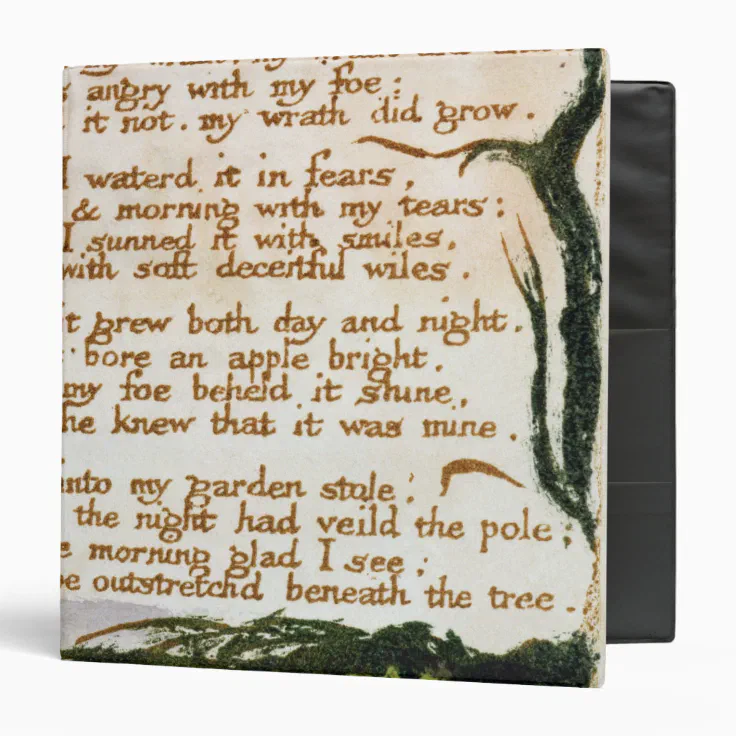 angry with my foe:
it not. my wrath did grow.
I waterd it in fears,
& morning with my tears:
I sunned it with smiles,
with soft deceitful wiles.
t grew both day and night.
bore an apple bright.
my foe beheld it shine,
he knew that it was mine.
into my garden stole.
the night had veild the pole;
morning glad I see;
outstretchd beneath the tree.